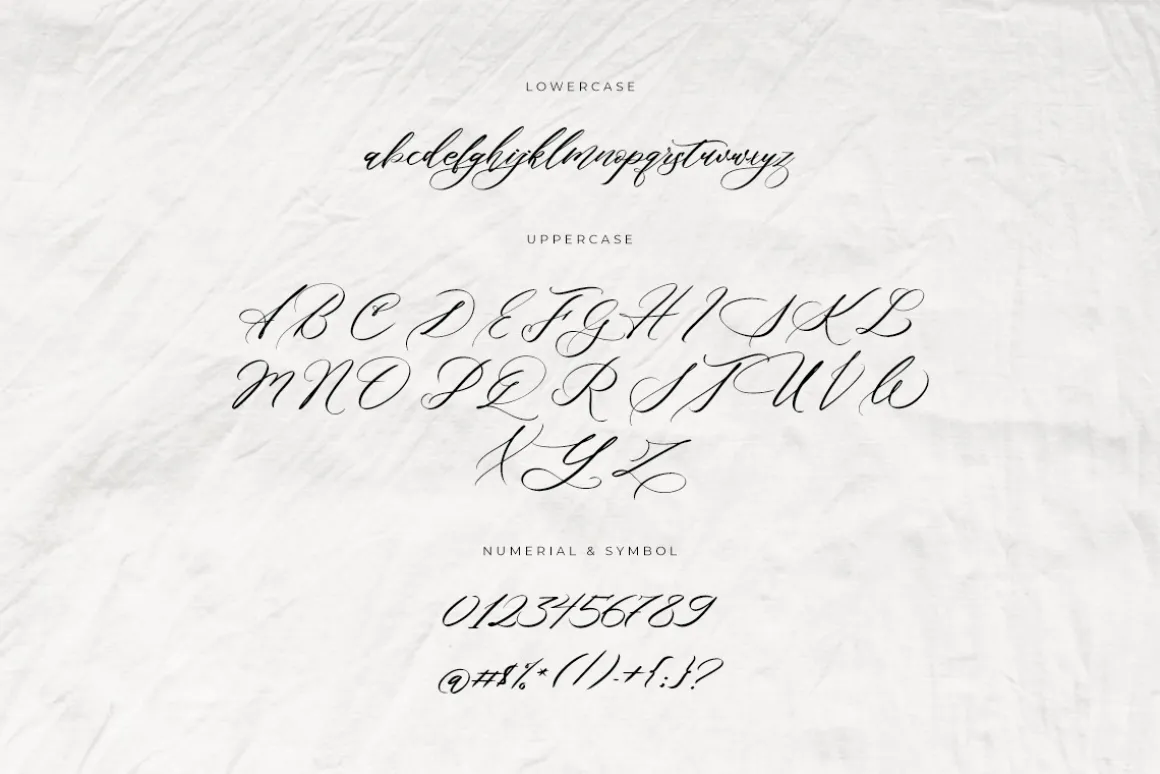 LOWERCASE
abcdefghijklmnopqrstuvwxyz
UPPERCASE
ABCDEFGHIJKL
MNOPQRSTUVW
XYZ
NUMERIAL & SYMBOL
0123456789
@#$%*(/)-+{:}?